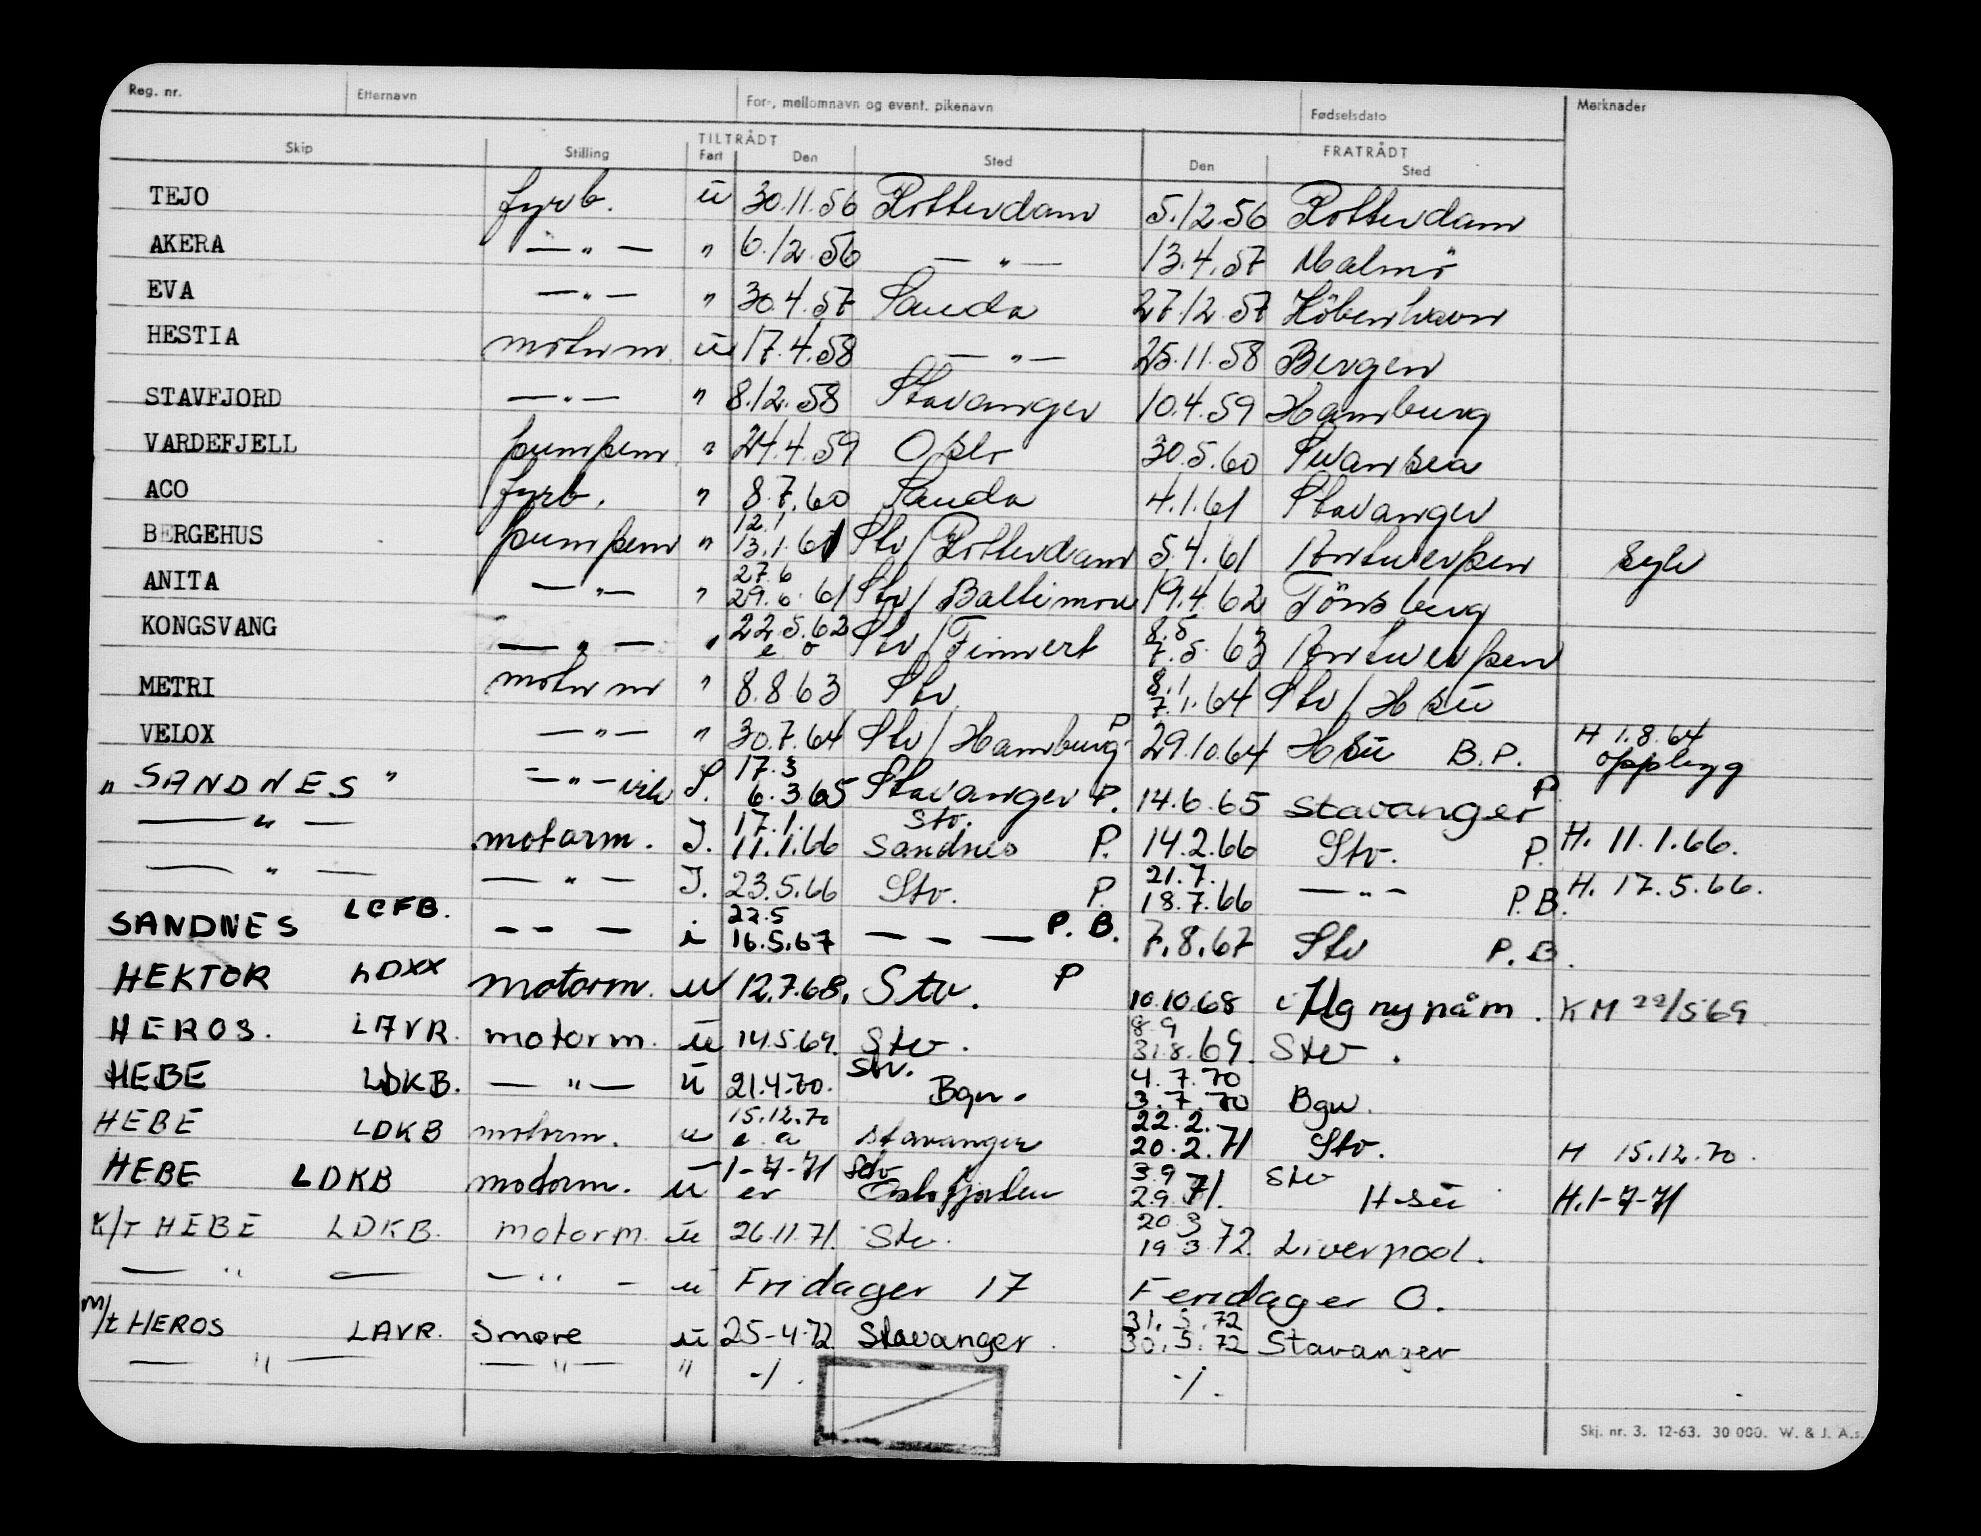 Reg. nr. Etternavn For-, mellomnavn og event. pikenavn Fødselsdato Merknader
TILTRÅDT FRATRÅDT
Skip Stilling Fart Den Sted Den Sted
TEJO fyrb. ü 30.11.56 Rotterdam 5.12.56 Rotterdam
AKERA — " — " 6.12.56 — " — 13.4.57 Malmö
EVA — " — " 30.4.57 Sauda 27.12.57 Köbenhavn
HESTIA motorm ü 17.4.58 — " — 25.11.58 Bergen
STAVFJORD — " — " 8.12.58 Stavanger 10.4.59 Hamburg
VARDEFJELL pumpem " 24.4.59 Oslo 30.5.60 Swansea
ACO fyrb. " 8.7.60 Sauda 4.1.61 Stavanger
12.1
BERGEHUS pumpem " 13.1.61 Stv/Rotterdam 5.4.61 Antwerpen syk
27.6
ANITA — " — " 29.6.61 Stv/Baltimore 19.4.62 Tönsberg
22.5.62 8.5
KONGSVANG — " — " e o Stv/Finnert 7.5.63 Antwerpen
8.1
METRI motorm " 8.8.63 Stv 7.1.64 Stv/Hsü
VELOX — " — " 30.7.64 Stv/Hamburg P 29.10.64 Hsü B.P. H 1.8.64 opplegg
17.3
" SANDNES " — " — vik S. 6.3.65 Stavanger P. 14.6.65 Stavanger P.
17.1. Stv.
— " — motorm. I. 11.1.66 Sandnes P. 14.2.66 Stv. P. H. 11.1.66.
21.7.
— " — — " — I. 23.5.66 Stv. P. 18.7.66 — " — P.B. H. 17.5.66.
22.5
SANDNES LCFB. — — — i 16.5.67 — — — P.B. 7.8.67 Stv P.B.
HEKTOR LDXX motorm. u 12.7.68. Stv. P 10.10.68 i Hg ny påm. KM 22/5 69
8 9
HEROS. LAVR. motorm. ü 14.5.69. Stv. 31.8.69. Stv.
Stv. 4.7.70
HEBE LDKB. — " — ü 21.4.70. Bgn. 3.7.70 Bgn.
15.12.70 22.2.
HEBE LDKB motorm. u e.a Stavanger 20.2.71 Stv. H 15.12.70.
1-7-71 Stv 3.9 Stv
HEBE LDKB motorm. ü er Oslofjorden 2.9.71. H-sü H.1-7-71
20 3
K/T HEBE LDKB. motorm. ü 26.11.71. Stv. 19 3.72. Liverpool.
— " — — " — ü Fridager 17 Feridager 0.
31.5.72
m/t HEROS LAVR. Smøre ü 25-4-72 Stavanger. 30.5.72 Stavanger
— " — — " — " -/. -/.
Skj. nr. 3. 12-63. 30 000. W. & J. A.s.